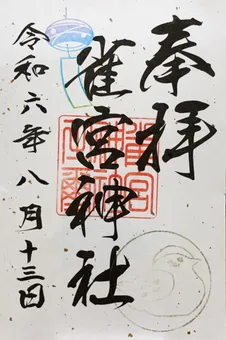 奉拝
雀宮神社
令和六年八月十三日